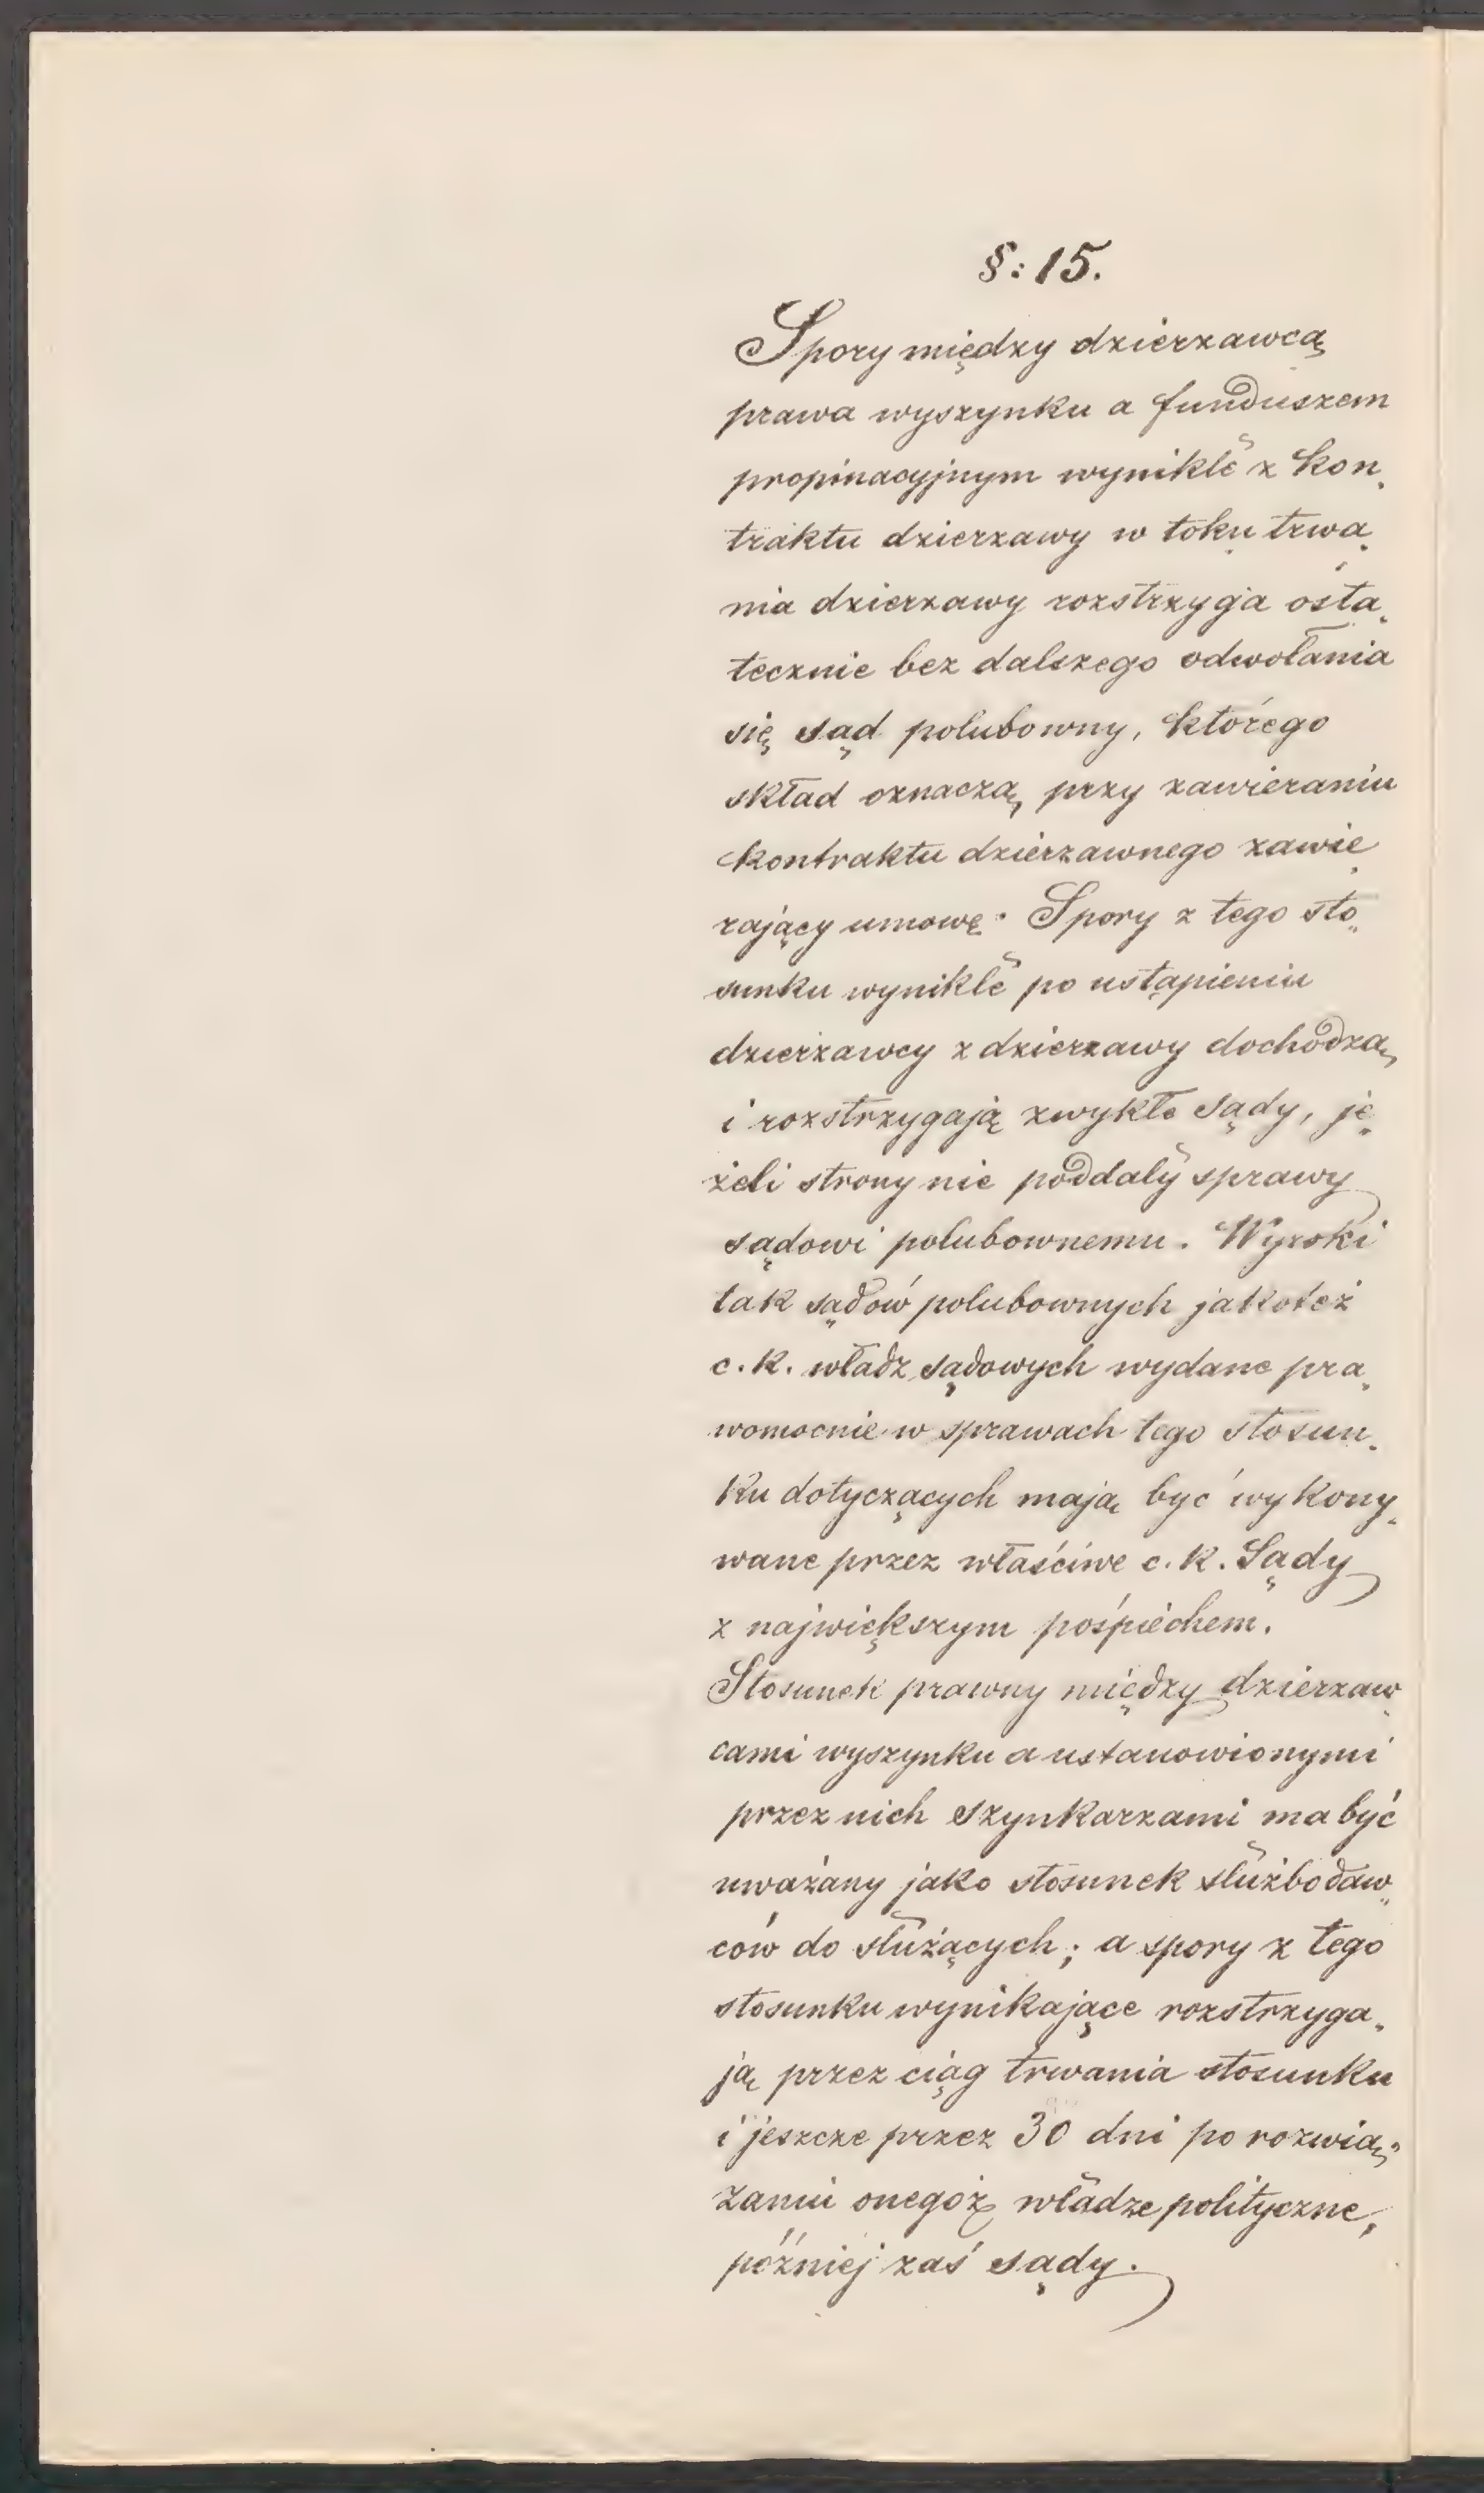 §: 15.
Spory między dzierzawcą
prawa wyszynku a funduszem
propinacyjnym wynikłe z kon„
traktu dzierzawy w toku trwa„
nia dzierzawy rozstrzyga osta„
tecznie bez dalszego odwołania
się sąd polubowny, którego
skład oznaczą przy zawieraniu
kontraktu dzierzawnego zawie„
rający umowę. Spory z tego sto„
sunku wynikłe po ustąpieniu
dzierzawcy z dzierzawy dochodzą
i rozstrzygają zwykłe sądy, je„
żeli strony nie poddały sprawy
sądowi polubownemu. Wyroki
tak sądów polubownych jakoteż
c. k. władz sądowych wydane pra„
womocnie w sprawach tego stosun„
ku dotyczących mają być wykony„
wane przez właściwe c. k. Sądy
z największym pośpiechem.
Stosunek prawny między dzierzaw„
cami wyszynku a ustanowionymi
przez nich szynkarzami ma być
uważany jako stosunek służbodaw„
ców do służących; a spory z tego
stosunku wynikające rozstrzyga„
ją przez ciąg trwania stosunku
i jeszcze przez 30 dni po rozwią„
zaniu onegoż władze polityczne,
później zaś sądy.